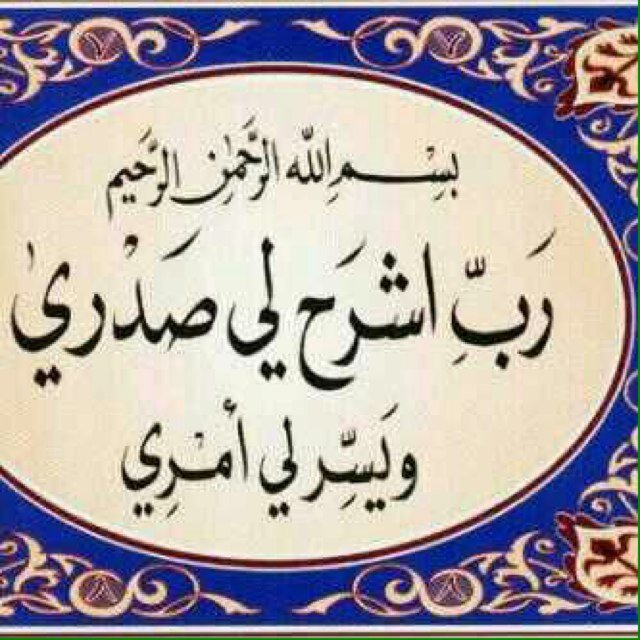 بِسْمِ اللّٰه الرَّحْمٰنِ الرَّحَيم
رَبِّ اشرَح لي صَدْري
ويَسِّر لي أمْرِي